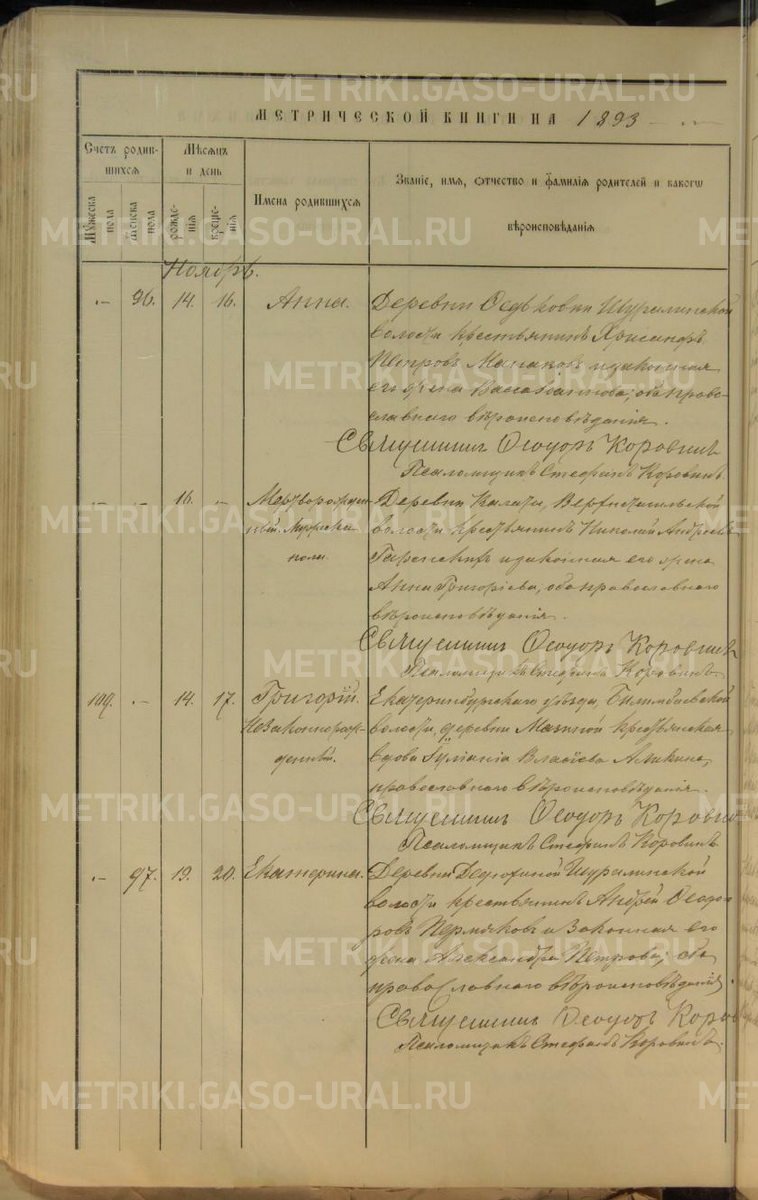 МЕТРИЧЕСКОЙ КНИГИ НА 1893
Счетъ родив-
шихся
Мѣсяцъ
и день
Имена родившихся
Званіе, имя, отчество и фамилія родителей и какого
вѣроисповѣданія
Мужеска
пола
Женска
пола
рожде-
нія
креще-
нія
Ноябрь.
96. 14. 16. Анна. Деревни Шуралинской
волости крестьянинъ Хрисанфъ
Петровъ и законная
его жена Васса Иванова, оба право-
славнаго вѣроисповѣданія.
Священникъ Ѳеодоръ Коровинъ
Псаломщикъ Стефанъ Коровинъ.
16. Мертворожден-
ный Мужска
пола
Деревни Калаты, Верхтагильской
волости крестьянинъ Николай Андреевъ
и законная его жена
Анна Григоріева, оба православнаго
вѣроисповѣданія.
Священникъ Ѳеодоръ Коровинъ
Псаломщикъ Стефанъ Коровинъ
109. 14. 17. Григорій.
Незаконнорож-
денный.
Екатеринбургскаго уѣзда, Билимбаевской
волости, деревни крестьянская
вдова Іуліанія Власіева Аликина,
православнаго вѣроисповѣданія.
Священникъ Ѳеодоръ Коровин
Псаломщикъ Стефанъ Коровинъ
97. 19. 20. Екатерина. Деревни Шуралинской
волости крестьянинъ Андрей Ѳеодо-
ровъ Пермяковъ и Законная его
жена Александра Петрова; оба
православнаго вѣроисповѣданія.
Священникъ Ѳеодоръ Коро
Псаломщикъ Стефанъ Коровинъ.
METRIKI.GASO-URAL.RU